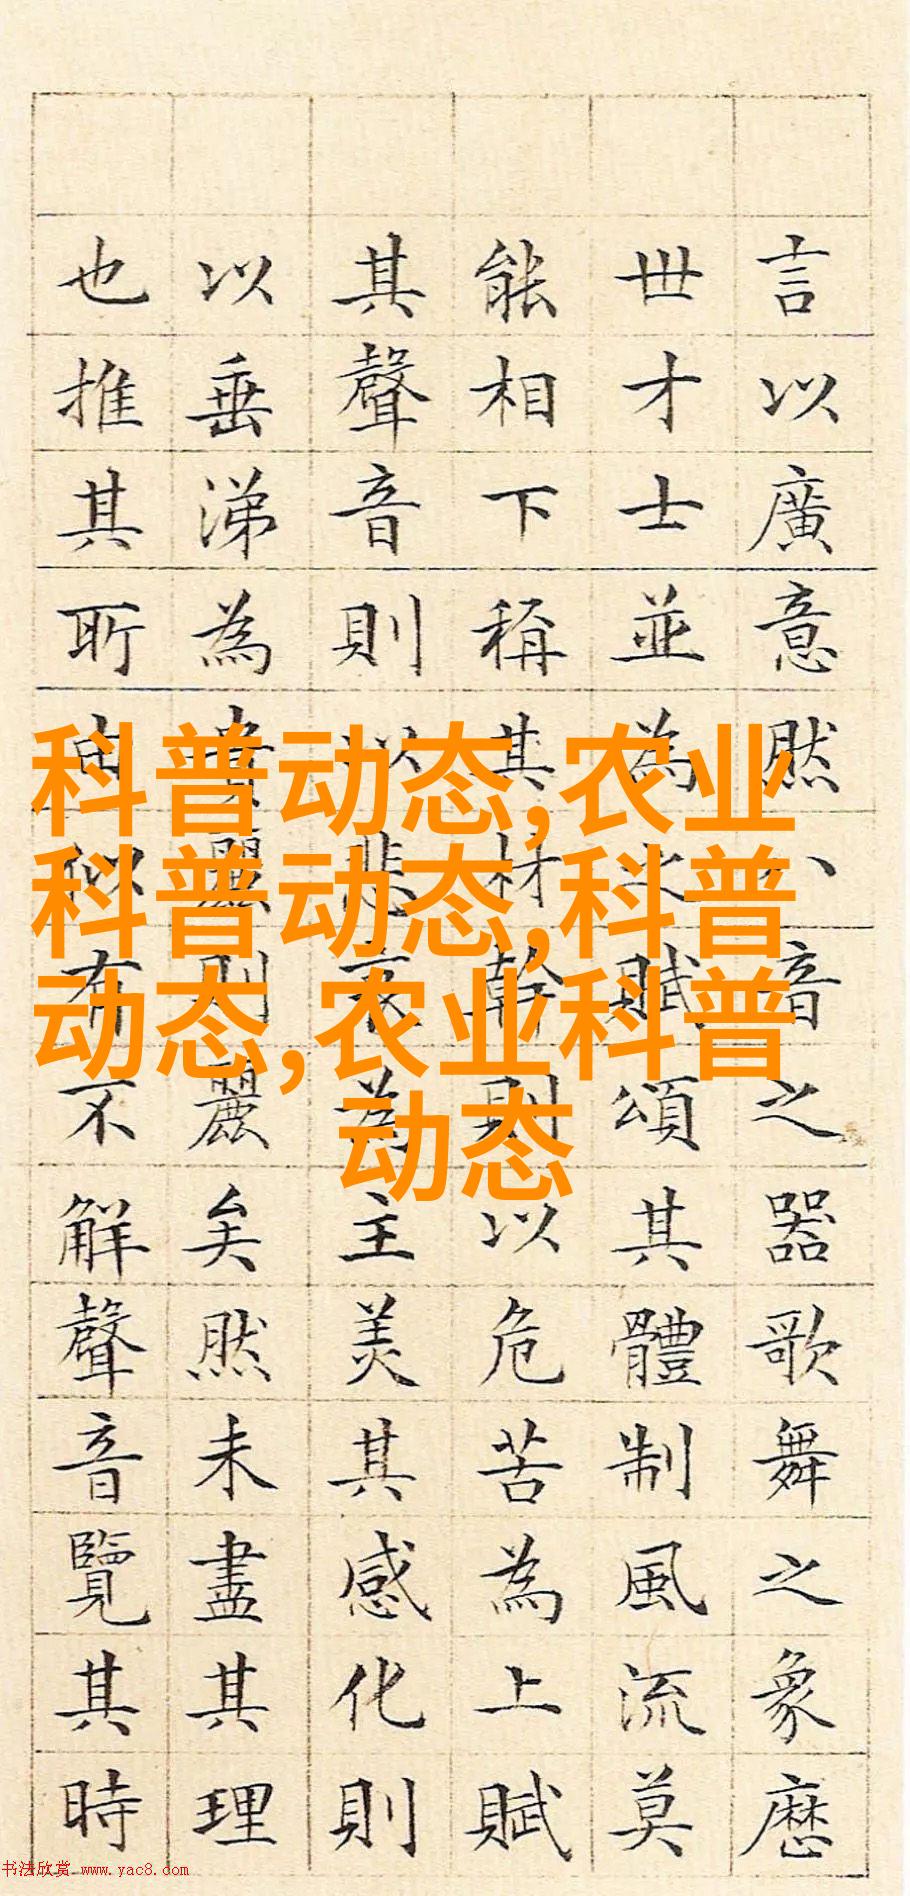 言以廣意然八音之器歌舞之象歷
世才士並為之賦頌其體制風流莫
能相下稱其材幹則以危苦為上賦
其聲音則以悲哀為主美其感化則
以垂涕為貴麗則麗矣然未盡其理
也推其所由似有不解聲音覽其時
科普动态,农业
科普动态,科普
动态,农业科普
动态
书法欣赏 www.yac8.com